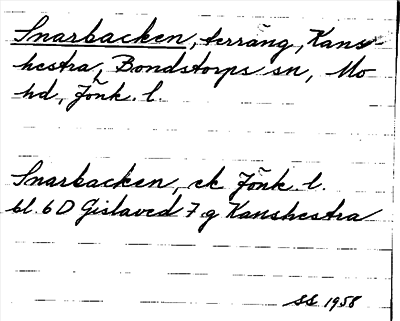 Snarbacken, terräng, Kans-
hestra, Bondstorps sn, Mo
hd, Jönk. l.
Snarbacken, ek Jönk. l.
bl. 6 D Gislaved 7 g Kanshestra
SS 1958